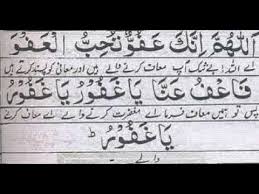 اَللّٰهُمَّ اِنَّكَ عَفُوٌّ تُحِبُّ الْعَفْوَ
اے اللہ! بے شک آپ معاف کرنے والے ہیں اور معافی کو پسند کرتے ہیں
فَاعْفُ عَنَّا يَا غَفُوْرُ يَا غَفُوْرُ
پس تو ہمیں معاف فرما اے مغفرت کرنے والے اے معاف کرنے
يَا غَفُوْرُ ط
والے -